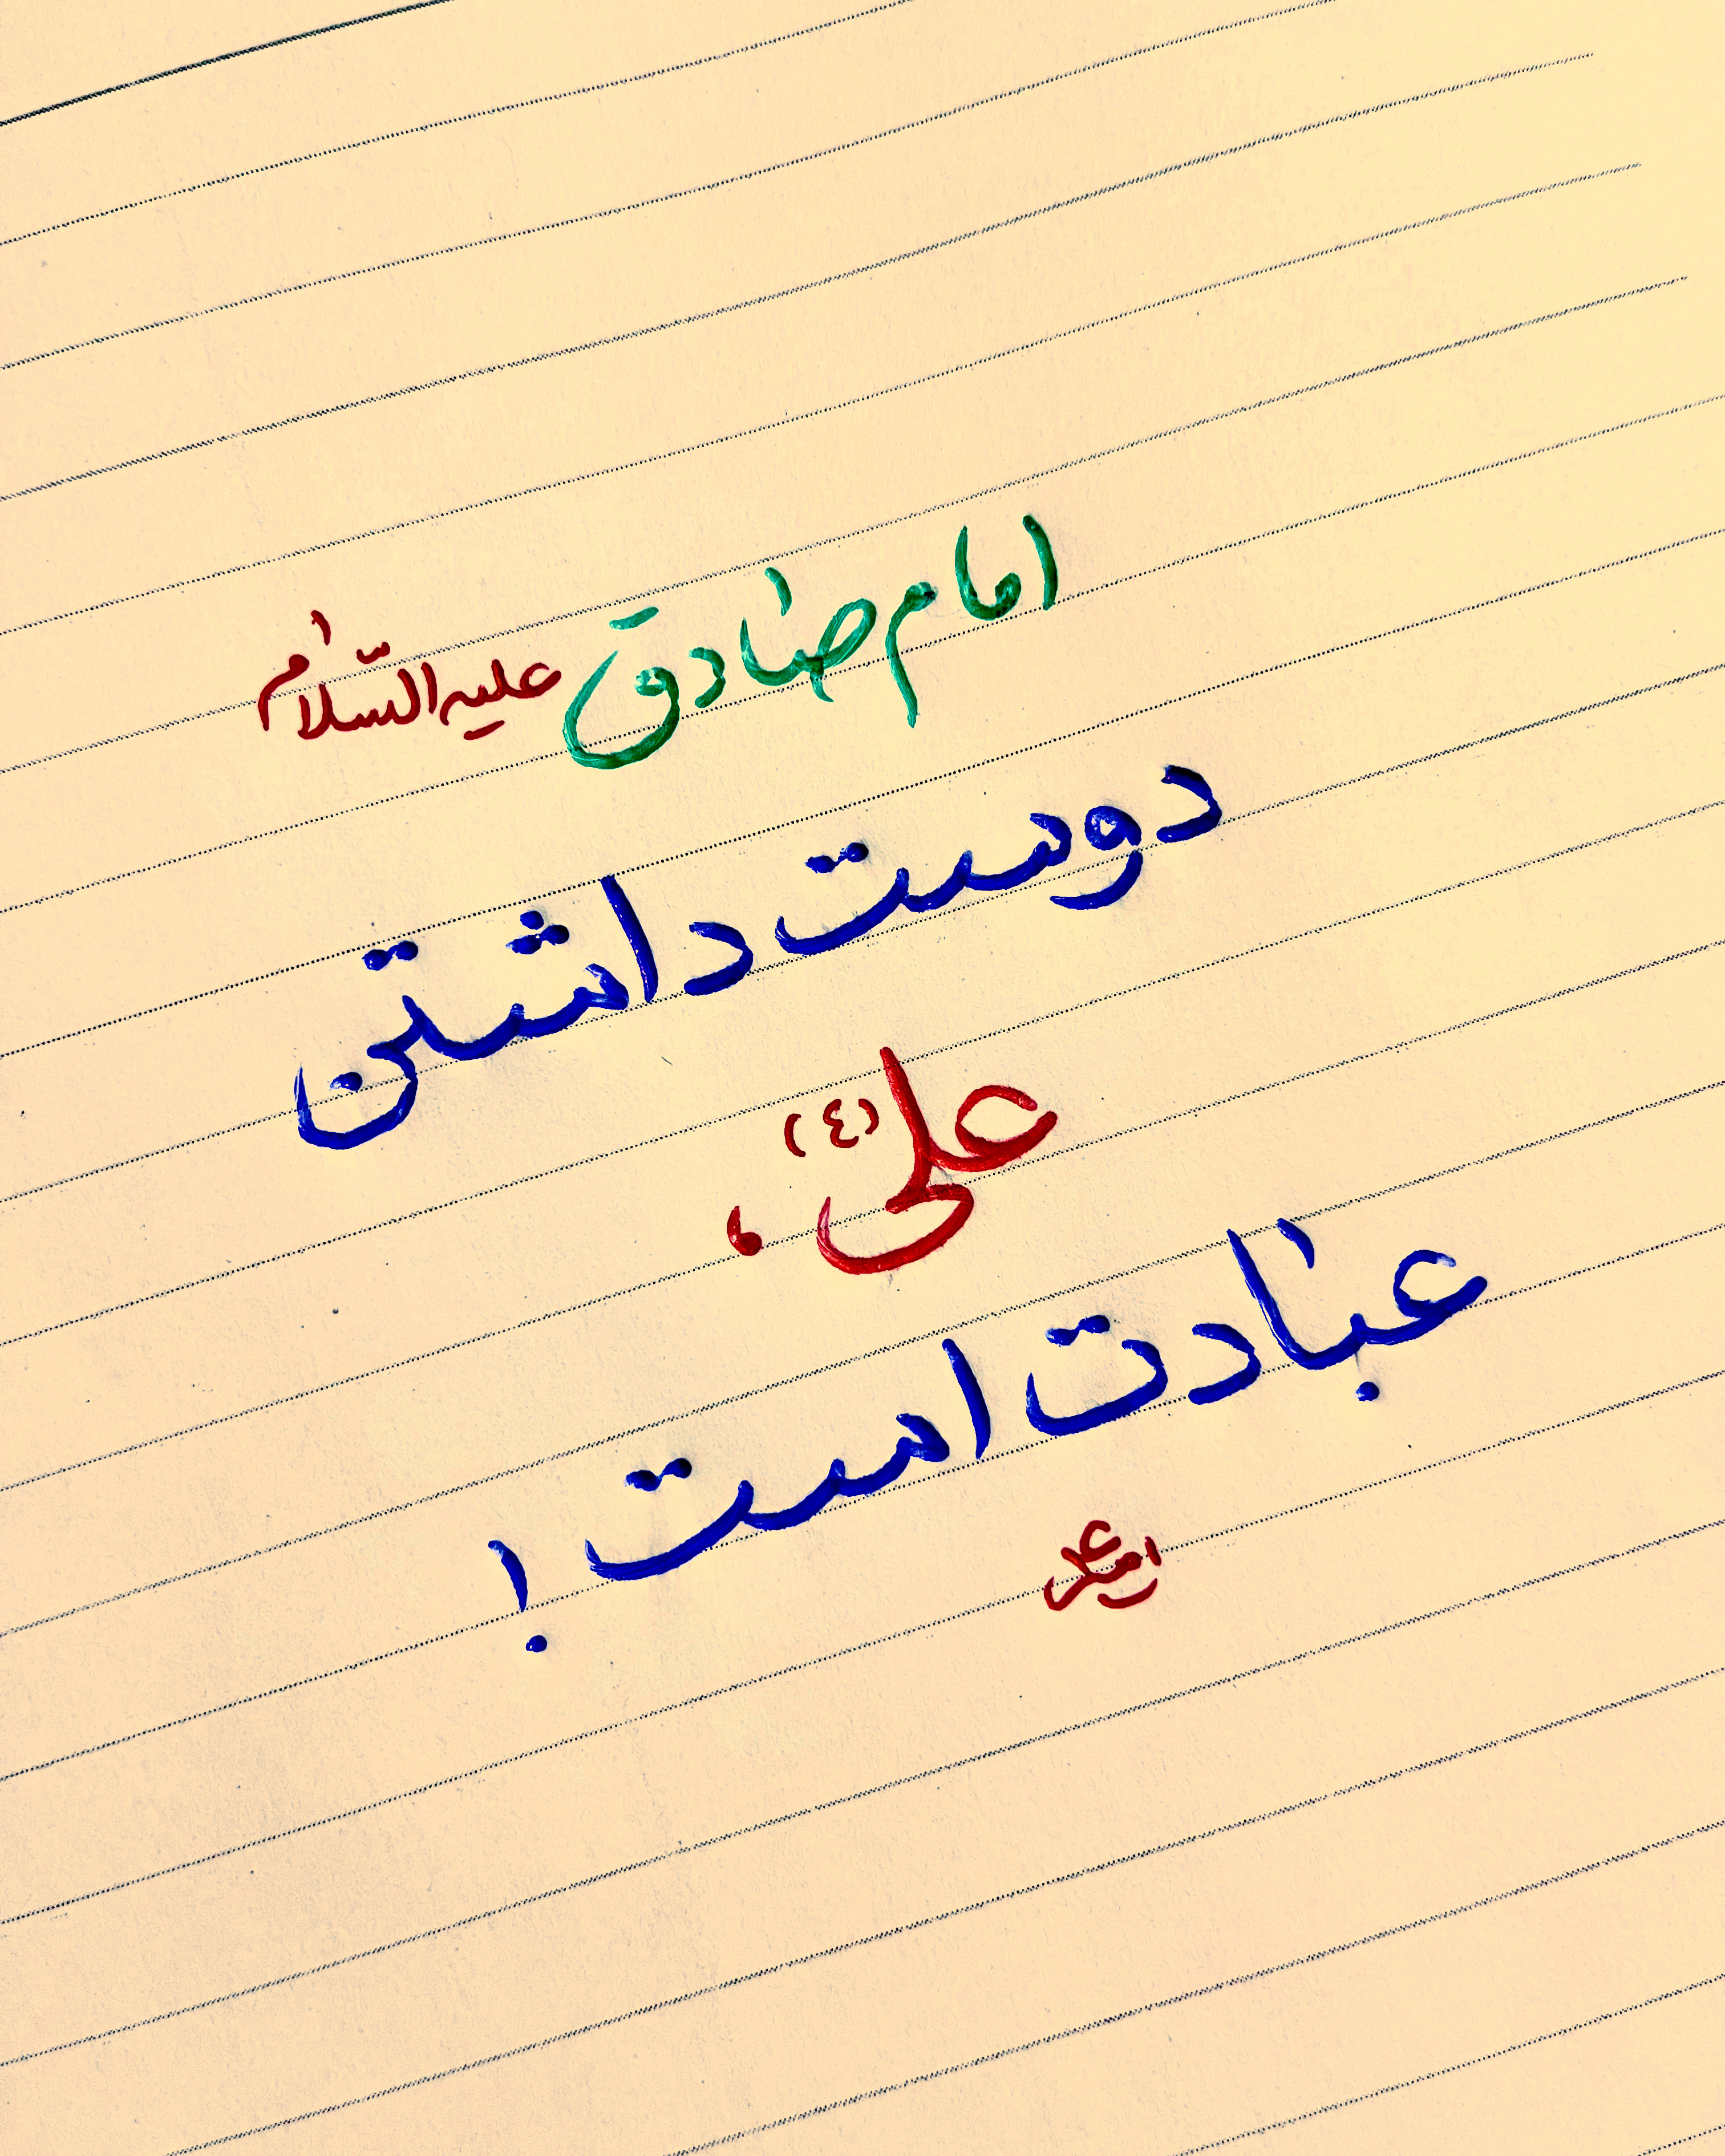 امام صادق علیه السّلام
دوست داشتن
علی (ع)،
عبادت است !